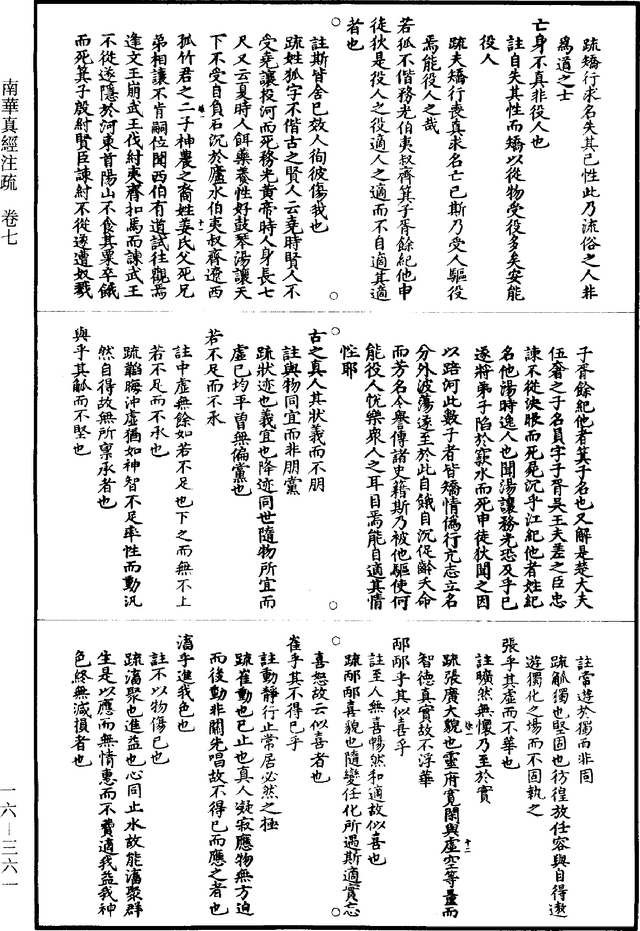 南華真經注疏　卷七
疏矯行求名失其己性此乃流俗之人非
爲道之士
亡身不真非役人也
註自失其性而矯以從物受役多矣安能
役人
疏夫矯行喪真求名亡己斯乃受人驅役
焉能役人之哉
若狐不偕務光伯夷叔齊箕子胥餘紀他申
徒狄是役人之役適人之適而不自適其適
者也
註斯皆舍己效人徇彼傷我也
疏姓狐字不偕古之賢人云堯時賢人不
受堯讓投河而死務光黄帝時人身長七
尺又云夏時人餌藥養性好鼓琴湯讓天
下不受自負石沉於廬水伯夷叔齊遼西
孤竹君之二子神農之裔姓姜氏父死兄
弟相讓不肯嗣位聞西伯有道試往觀焉
逢文王崩武王伐紂夷齊扣馬而諫武王
不從遂隱於河東首陽山不食其粟卒餓
而死箕子殷紂賢臣諫紂不從遂遭奴戮
子胥餘紀他者箕子名也又解是楚大夫
伍奢之子名員字子胥吳王夫差之臣忠
諫不從決眼而死屍沉乎江紀他者姓紀
名他湯時逸人也聞湯讓務光恐及乎己
遂將弟子陷於窾水而死申徒狄聞之因
以踣河此數子者皆矯情僞行亢志立名
分外波蕩遂至於此自餓自沉促齡夭命
而芳名令譽傳諸史籍斯乃被他驅使何
能役人悅樂衆人之耳目焉能自適其情
性耶
古之真人其狀義而不朋
註與物同宜而非朋黨
疏狀迹也義宜也降迹同世隨物所宜而
虛己均平曾無偏黨也
若不足而不承
註中虛無餘如若不足也下之而無不上
若不足而不承也
疏韜晦沖虛猶如神智不足率性而動汎
然自得故無所稟承者也
與乎其觚而不堅也
註當遊於獨而非固
疏觚獨也堅固也彷徨放任容與自得遨
遊獨化之場而不固執之
張乎其虛而不華也
註曠然無懷乃至於實
疏張廣大貌也靈府寬閑與虛空等量而
智德真實故不浮華
邴邴乎其似喜乎
註至人無喜暢然和適故似喜也
疏邴邴喜貌也隨變任化所遇斯適實忘
喜怒故云似喜者也
崔乎其不得已乎
註動靜行止常居必然之極
疏崔動也已止也真人凝寂應物無方迫
而後動非關先唱故不得已而應之者也
滀乎進我色也
註不以物傷己也
疏滀聚也進益也心同止水故能滀聚群
生是以應而無情惠而不費適我益我神
色終無減損者也
一六—三六一